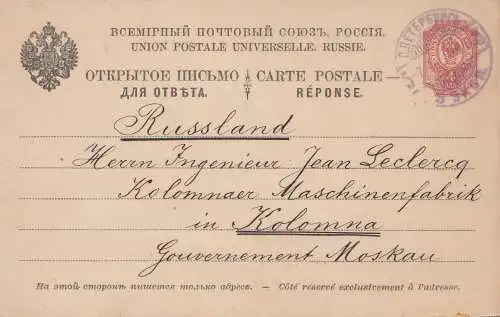 ВСЕМІРНЫЙ ПОЧТОВЫЙ СОЮЗЪ. РОССІЯ.
UNION POSTALE UNIVERSELLE. RUSSIE.
ОТКРЫТОЕ ПИСЬМО — CARTE POSTALE
ДЛЯ ОТВѢТА. RÉPONSE.
С.ПЕТЕРБУРГЪ
Russland
Herrn Ingenieur Jean Leclercq
Kolomnaer Maschinenfabrik
in Kolomna
Gouvernement Moskau
На этой сторонѣ пишется только адресъ. — Côté réservé exclusivement à l'adresse.